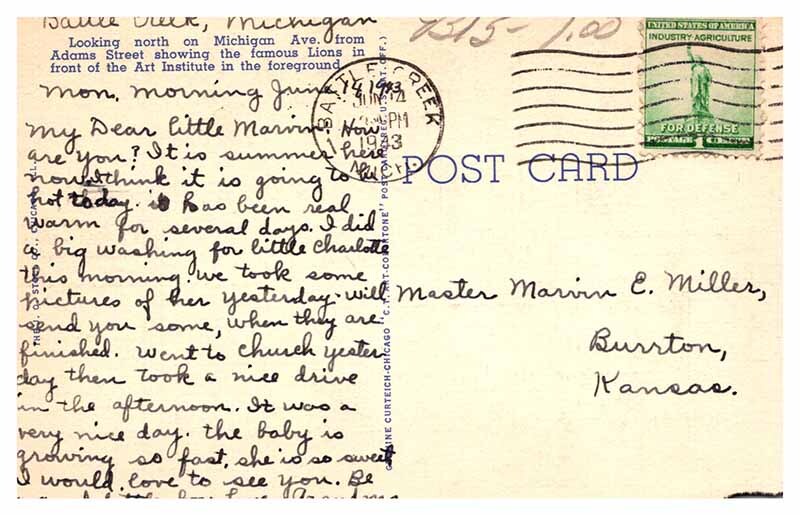 Battle Creek, Michigan
Looking north on Michigan Ave. from
Adams Street showing the famous Lions in
front of the Art Institute in the foreground.
Mon. morning June 14, 1943
My Dear little Marvin. How
are you? It is summer here
now. I think it is going to be
hot today. it has been real
warm for several days. I did
a big washing for little Charlotte
this morning. we took some
pictures of her yesterday. will
send you some, when they are
finished. went to church yester
day then took a nice drive
in the afternoon. It was a
very nice day. the baby is
growing so fast, she is so sweet
I would love to see you. Be
a good little boy, love Grandma
BATTLE CREEK
JUN 14
PM
1943
MICH.
B315 - 1.00
UNITED STATES OF AMERICA
INDUSTRY·AGRICULTURE
FOR DEFENSE
POSTAGE 1¢
POST CARD
Master Marvin E. Miller,
Burrton,
Kansas.
GENUINE CURTEICH-CHICAGO "C.T. ART-COLORTONE" POST CARD (REG. U.S. PAT. OFF.)
CHICAGO